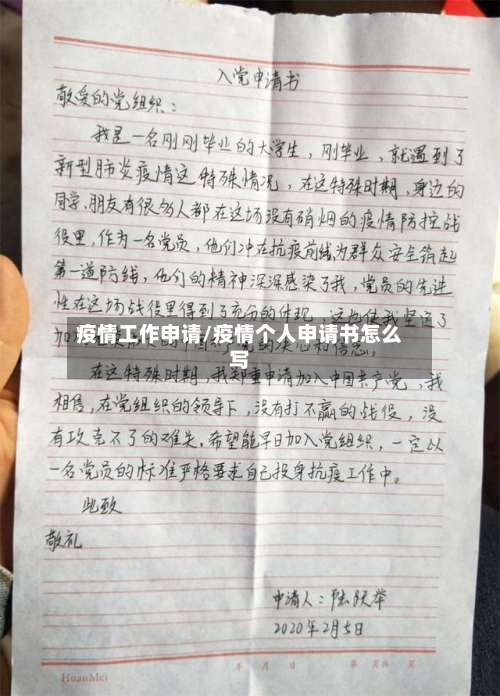 入党申请书
敬爱的党组织：
我是一名刚刚毕业的大学生，刚毕业，就遇到了
新型肺炎疫情这特殊情况，在这特殊时期，身边的
同学，朋友有很多人都在这场没有硝烟的疫情防控战
役里，作为一名党员，他们冲在抗疫前线，为群众安全筑起
第一道防线，他们的精神深深感染了我，党员的先进
性在这场战役里得到了充分的体现，这也使我坚定了
疫情工作申请/疫情个人申请书怎么
写
加入 的决心和信念。
在这特殊时期，我郑重申请加入中国共产党，我
相信，在党组织的领导下，没有打不赢的战役，没
有攻克不了的难关，希望能早日加入党组织，一定以
一名党员的标准严格要求自己投身抗疫工作中。
此致
敬礼
申请人：陆
2020年2月5日
HuanMei
年 月 日 第 页共 页